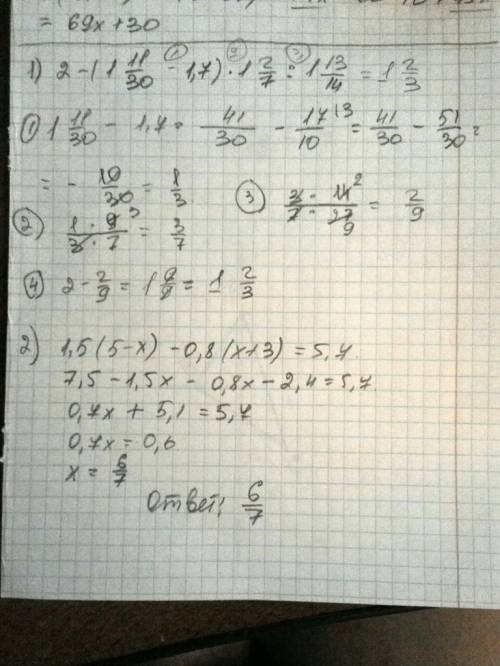 = 69x+30
1) 2-(1 11/30 - 1,7) · 1 2/7 : 1 13/14 = 1 2/3
① 1 11/30 - 1,7 = 41/30 - 17/10 = 41/30 - 51/30 =
= - 10/30 = 1/3 ③ 3 · 14/7 · 27 = 2/9
2) 1 · 9/3 · 7 = 3/7
④ 2 - 2/9 = 1 = 1 2/3
2) 1,5(5-x) - 0,8(x+3) = 5,7
7,5 - 1,5x - 0,8x - 2,4 = 5,7
0,7x + 5,1 = 5,7
0,7x = 0,6
x = 6/7
Ответ: 6/7